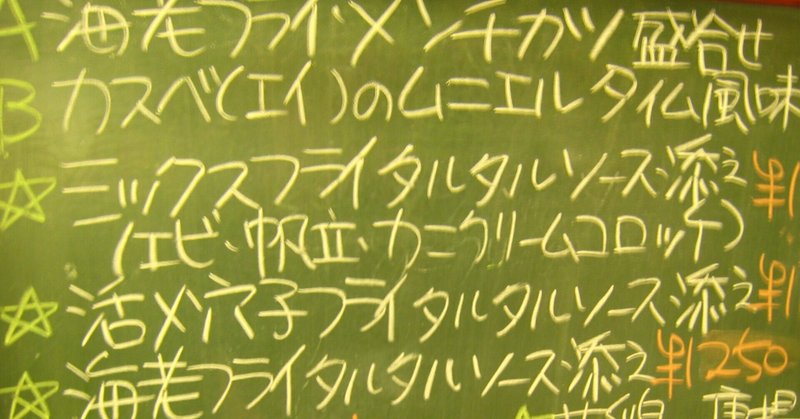 A 海老フライ・メンチカツ盛合せ
B カスベ(エイ)のムニエル タイム風味
☆ ミックスフライタルタルソース添え ¥1
(エビ・帆立・カニクリームコロッケ)
☆ 活〆穴子フライタルタルソース添え ¥1
☆ 海老フライタルタルソース添え ¥1250